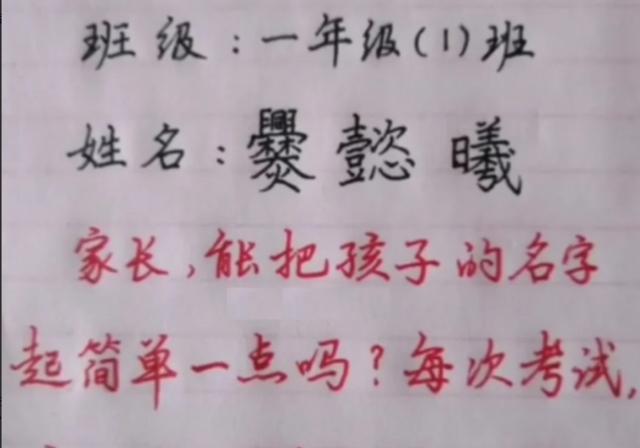 班级:一年级(1)班
姓名:爨懿曦
家长,能把孩子的名字
起简单一点吗?每次考试,